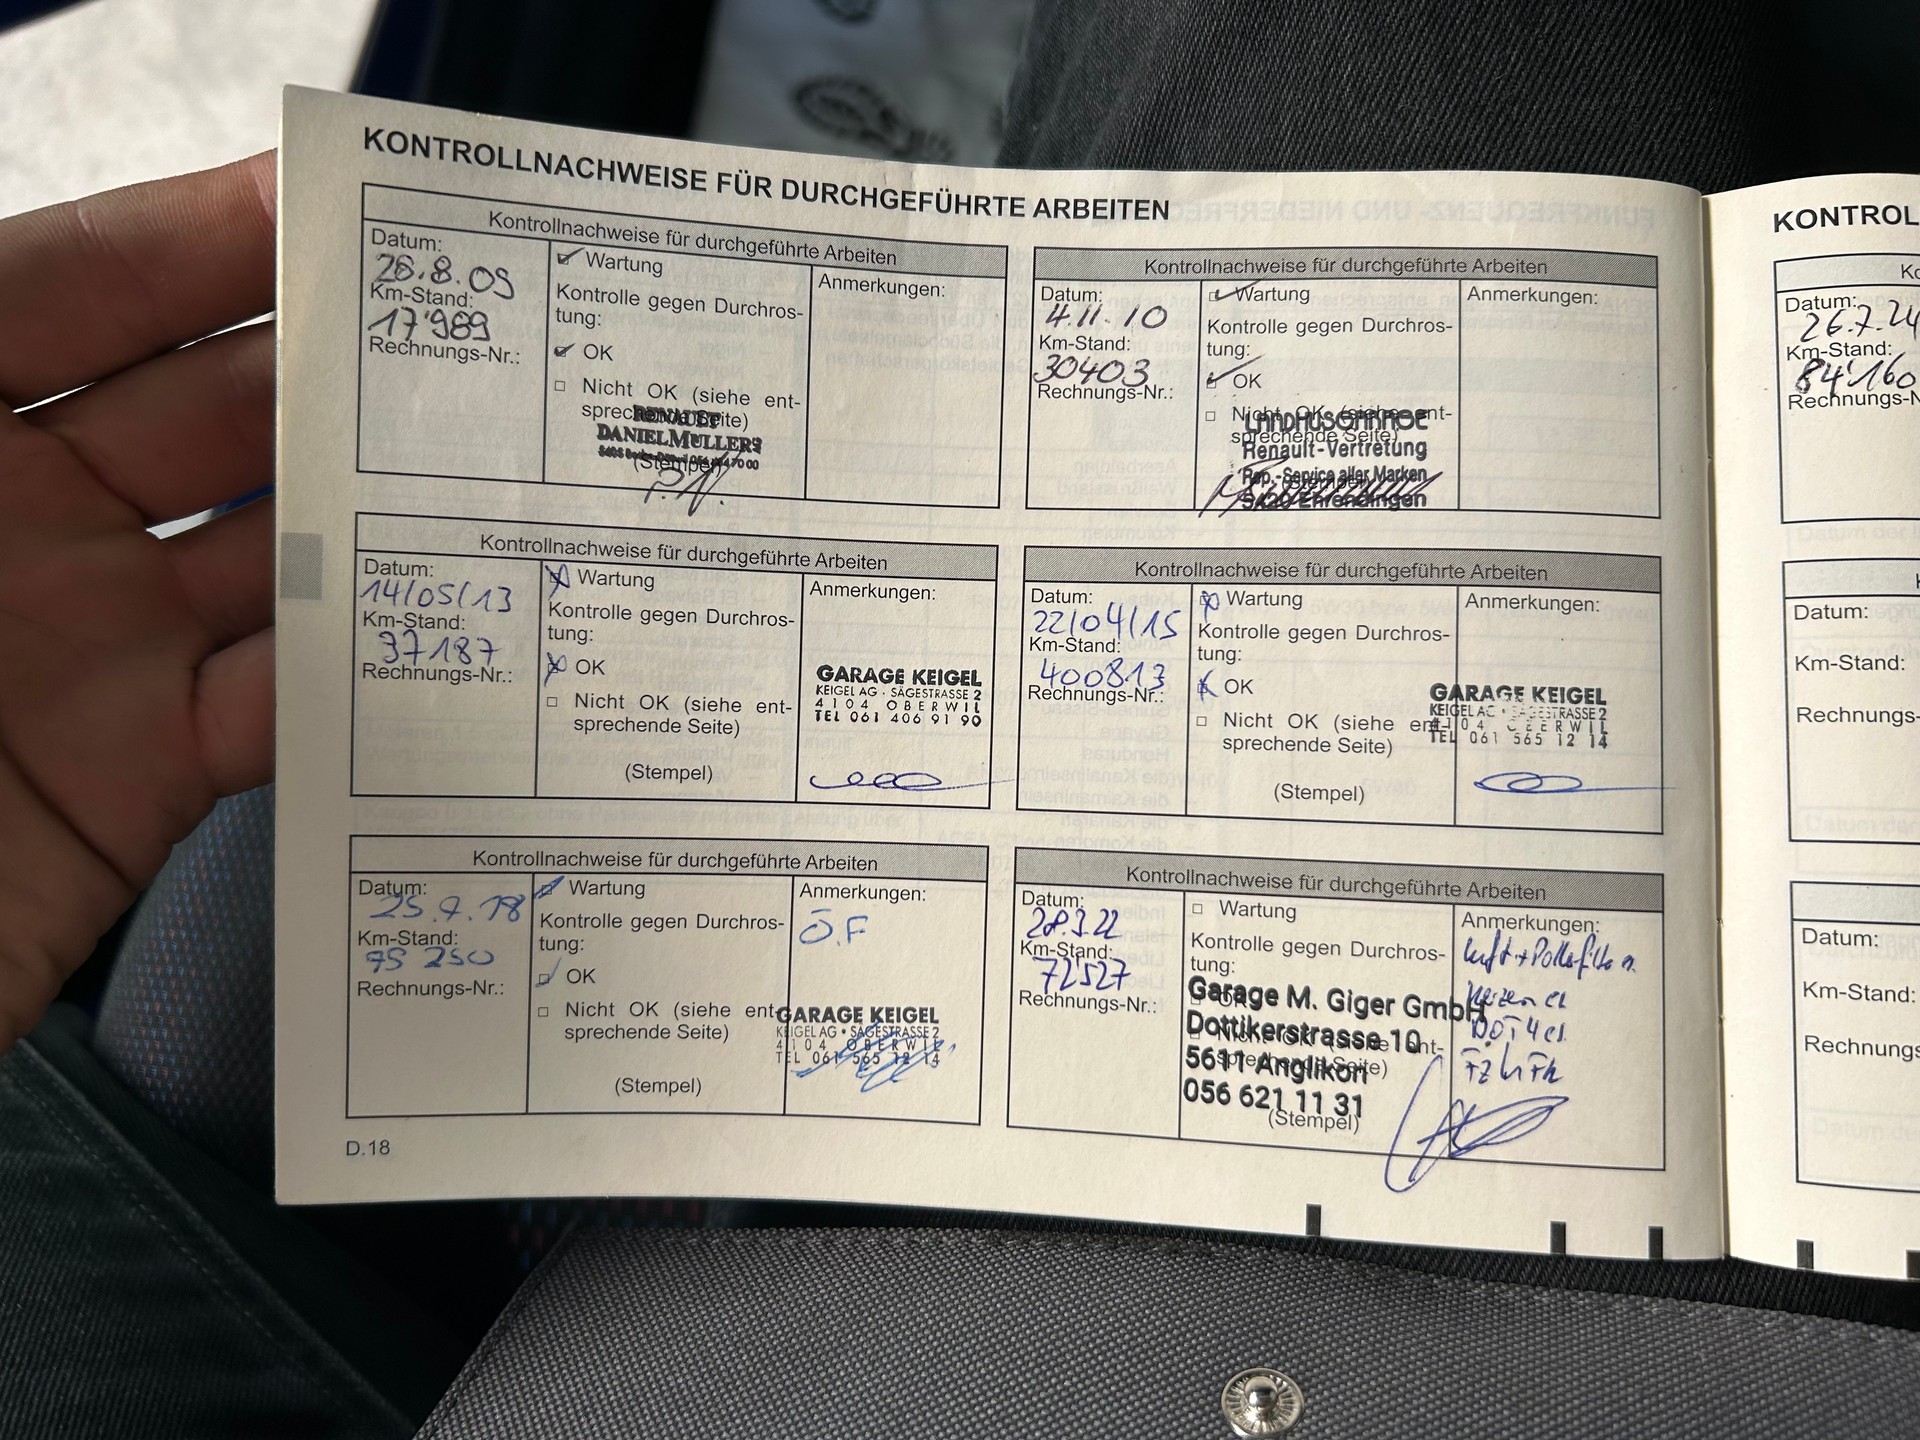 KONTROLLNACHWEISE FÜR DURCHGEFÜHRTE ARBEITEN
Kontrollnachweise für durchgeführte Arbeiten
Datum:
26.8.09
Km-Stand:
17'989
Rechnungs-Nr.:
Wartung
Kontrolle gegen Durchros-
tung:
OK
Nicht OK (siehe ent-
sprechende Seite)
RENAULT
DANIEL MULLER
(Stempel)
Anmerkungen:
Kontrollnachweise für durchgeführte Arbeiten
Datum:
4.11.10
Km-Stand:
30403
Rechnungs-Nr.:
Wartung
Kontrolle gegen Durchros-
tung:
OK
Nicht OK (siehe ent-
sprechende Seite)
Renault-Vertretung
Rep.-Service aller Marken
5420 Ehrendingen
Anmerkungen:
Kontrollnachweise für durchgeführte Arbeiten
Datum:
14/05/13
Km-Stand:
37187
Rechnungs-Nr.:
Wartung
Kontrolle gegen Durchros-
tung:
OK
Nicht OK (siehe ent-
sprechende Seite)
(Stempel)
Anmerkungen:
GARAGE KEIGEL
KEIGEL AG · SÄGESTRASSE 2
4104 OBERWIL
TEL 061 406 91 90
Kontrollnachweise für durchgeführte Arbeiten
Datum:
22/04/15
Km-Stand:
400813
Rechnungs-Nr.:
Wartung
Kontrolle gegen Durchros-
tung:
OK
Nicht OK (siehe ent-
sprechende Seite)
(Stempel)
Anmerkungen:
GARAGE KEIGEL
KEIGEL AG · SÄGESTRASSE 2
4104 OBERWIL
TEL 061 565 12 14
Kontrollnachweise für durchgeführte Arbeiten
Datum:
25.7.18
Km-Stand:
Rechnungs-Nr.:
Wartung
Kontrolle gegen Durchros-
tung:
OK
Nicht OK (siehe ent-
sprechende Seite)
(Stempel)
Anmerkungen:
Ö.F
GARAGE KEIGEL
KEIGEL AG • SÄGESTRASSE 2
4104 OBERWIL
TEL 061 565 12 14
Kontrollnachweise für durchgeführte Arbeiten
Datum:
28.3.22
Km-Stand:
72'527
Rechnungs-Nr.:
Wartung
Kontrolle gegen Durchros-
tung:
OK
Nicht OK (siehe ent-
sprechende Seite)
Garage M. Giger GmbH
Dottikerstrasse 10
5611 Anglikon
056 621 11 31
(Stempel)
Anmerkungen:
Luft + Pollenfilter
Kerzen
DOT4
D.18
KONTROL
Ko
Datum:
26.7.24
Km-Stand:
84'160
Rechnungs-N
Datum:
Km-Stand:
Rechnungs-
Datum:
Km-Stand:
Rechnungs